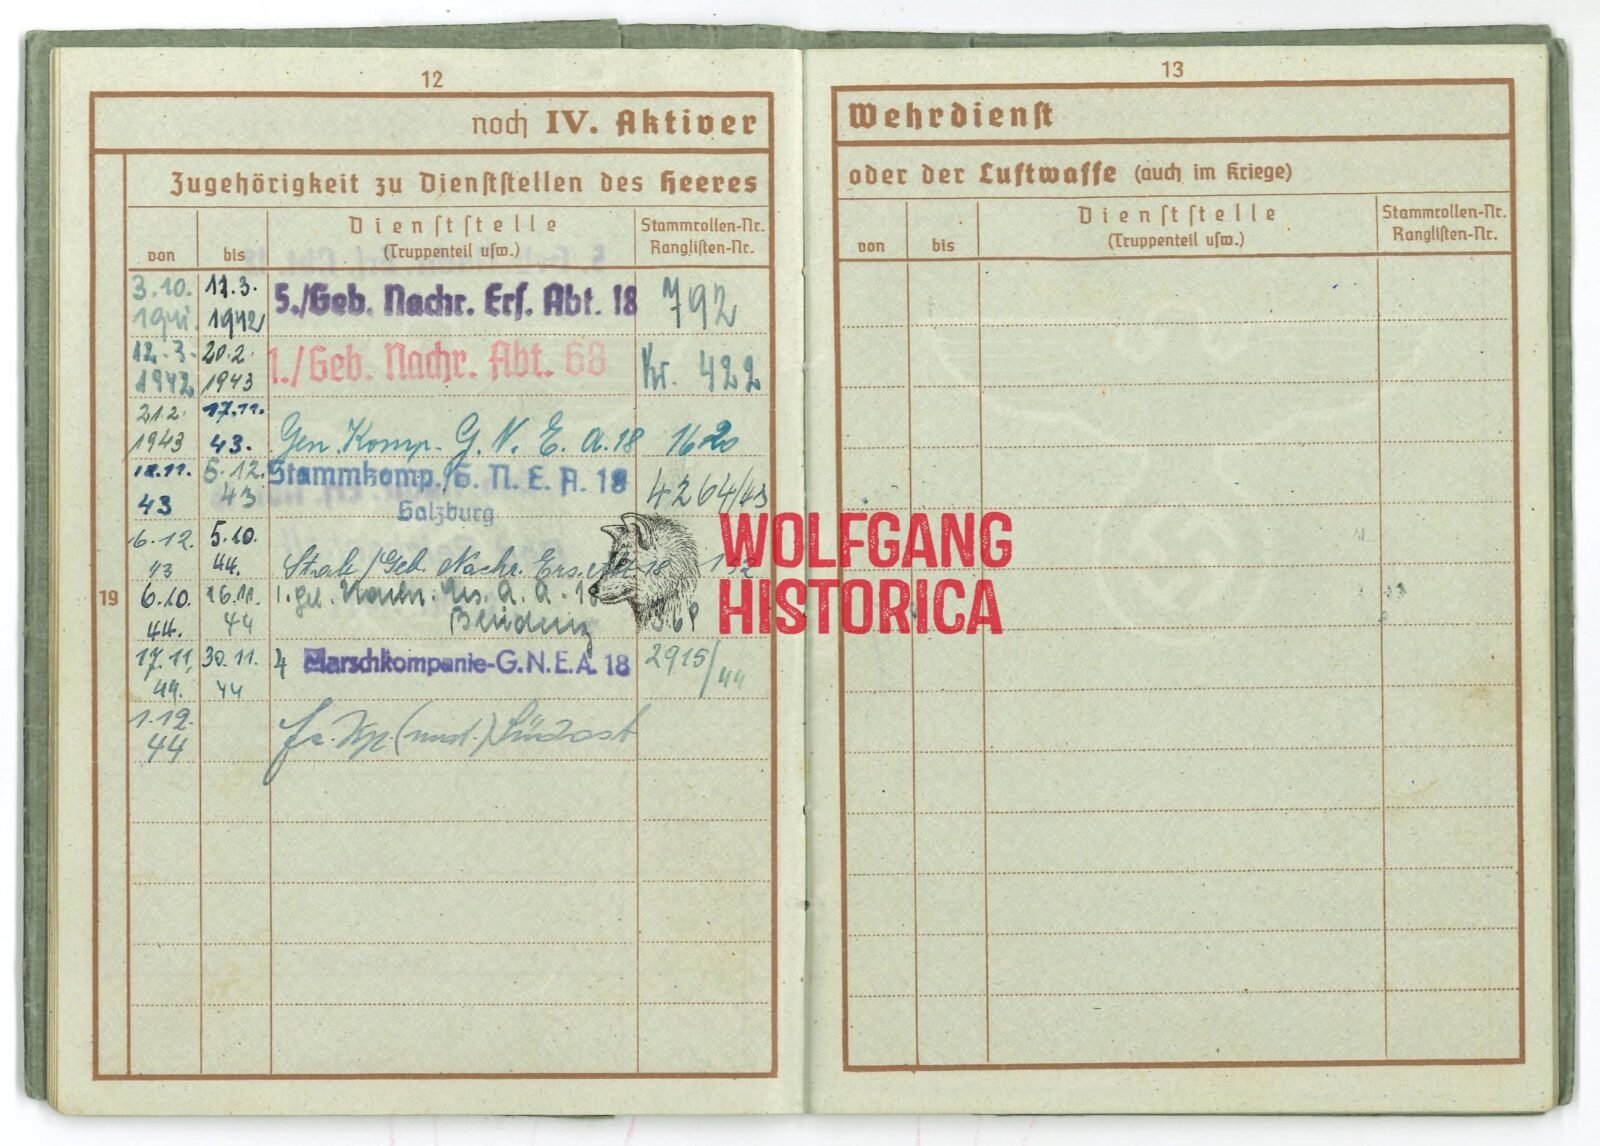 12
noch IV. Aktiver
Zugehörigkeit zu Dienststellen des Heeres
von bis Dienststelle (Truppenteil usw.) Stammrollen-Nr. Ranglisten-Nr.
3.10. 1941. 11.3. 1942 5./Geb. Nachr. Ers. Abt. 18 792
12.3. 1942 20.2. 1943 1./Geb. Nachr. Abt. 68 Kr. 422
21.2. 1943 17.11. 43. Gen. Komp. G. N. E. A. 18 1620
18.11. 43 5.12. 43 Stammkomp./G. N. E. A. 18 4264/43
Salzburg
6.12. 43 5.10. 44. Stab/Geb. Nachr. Ers. 18
19
6.10. 44. 16.11. 44 Bludenz
17.11. 44. 30.11. 44 4 Marschkompanie-G.N.E.A. 18 2915/44
1.12. 44 Südost
WOLFGANG
HISTORICA
13
Wehrdienst
oder der Luftwaffe (auch im Kriege)
von bis Dienststelle (Truppenteil usw.) Stammrollen-Nr. Ranglisten-Nr.